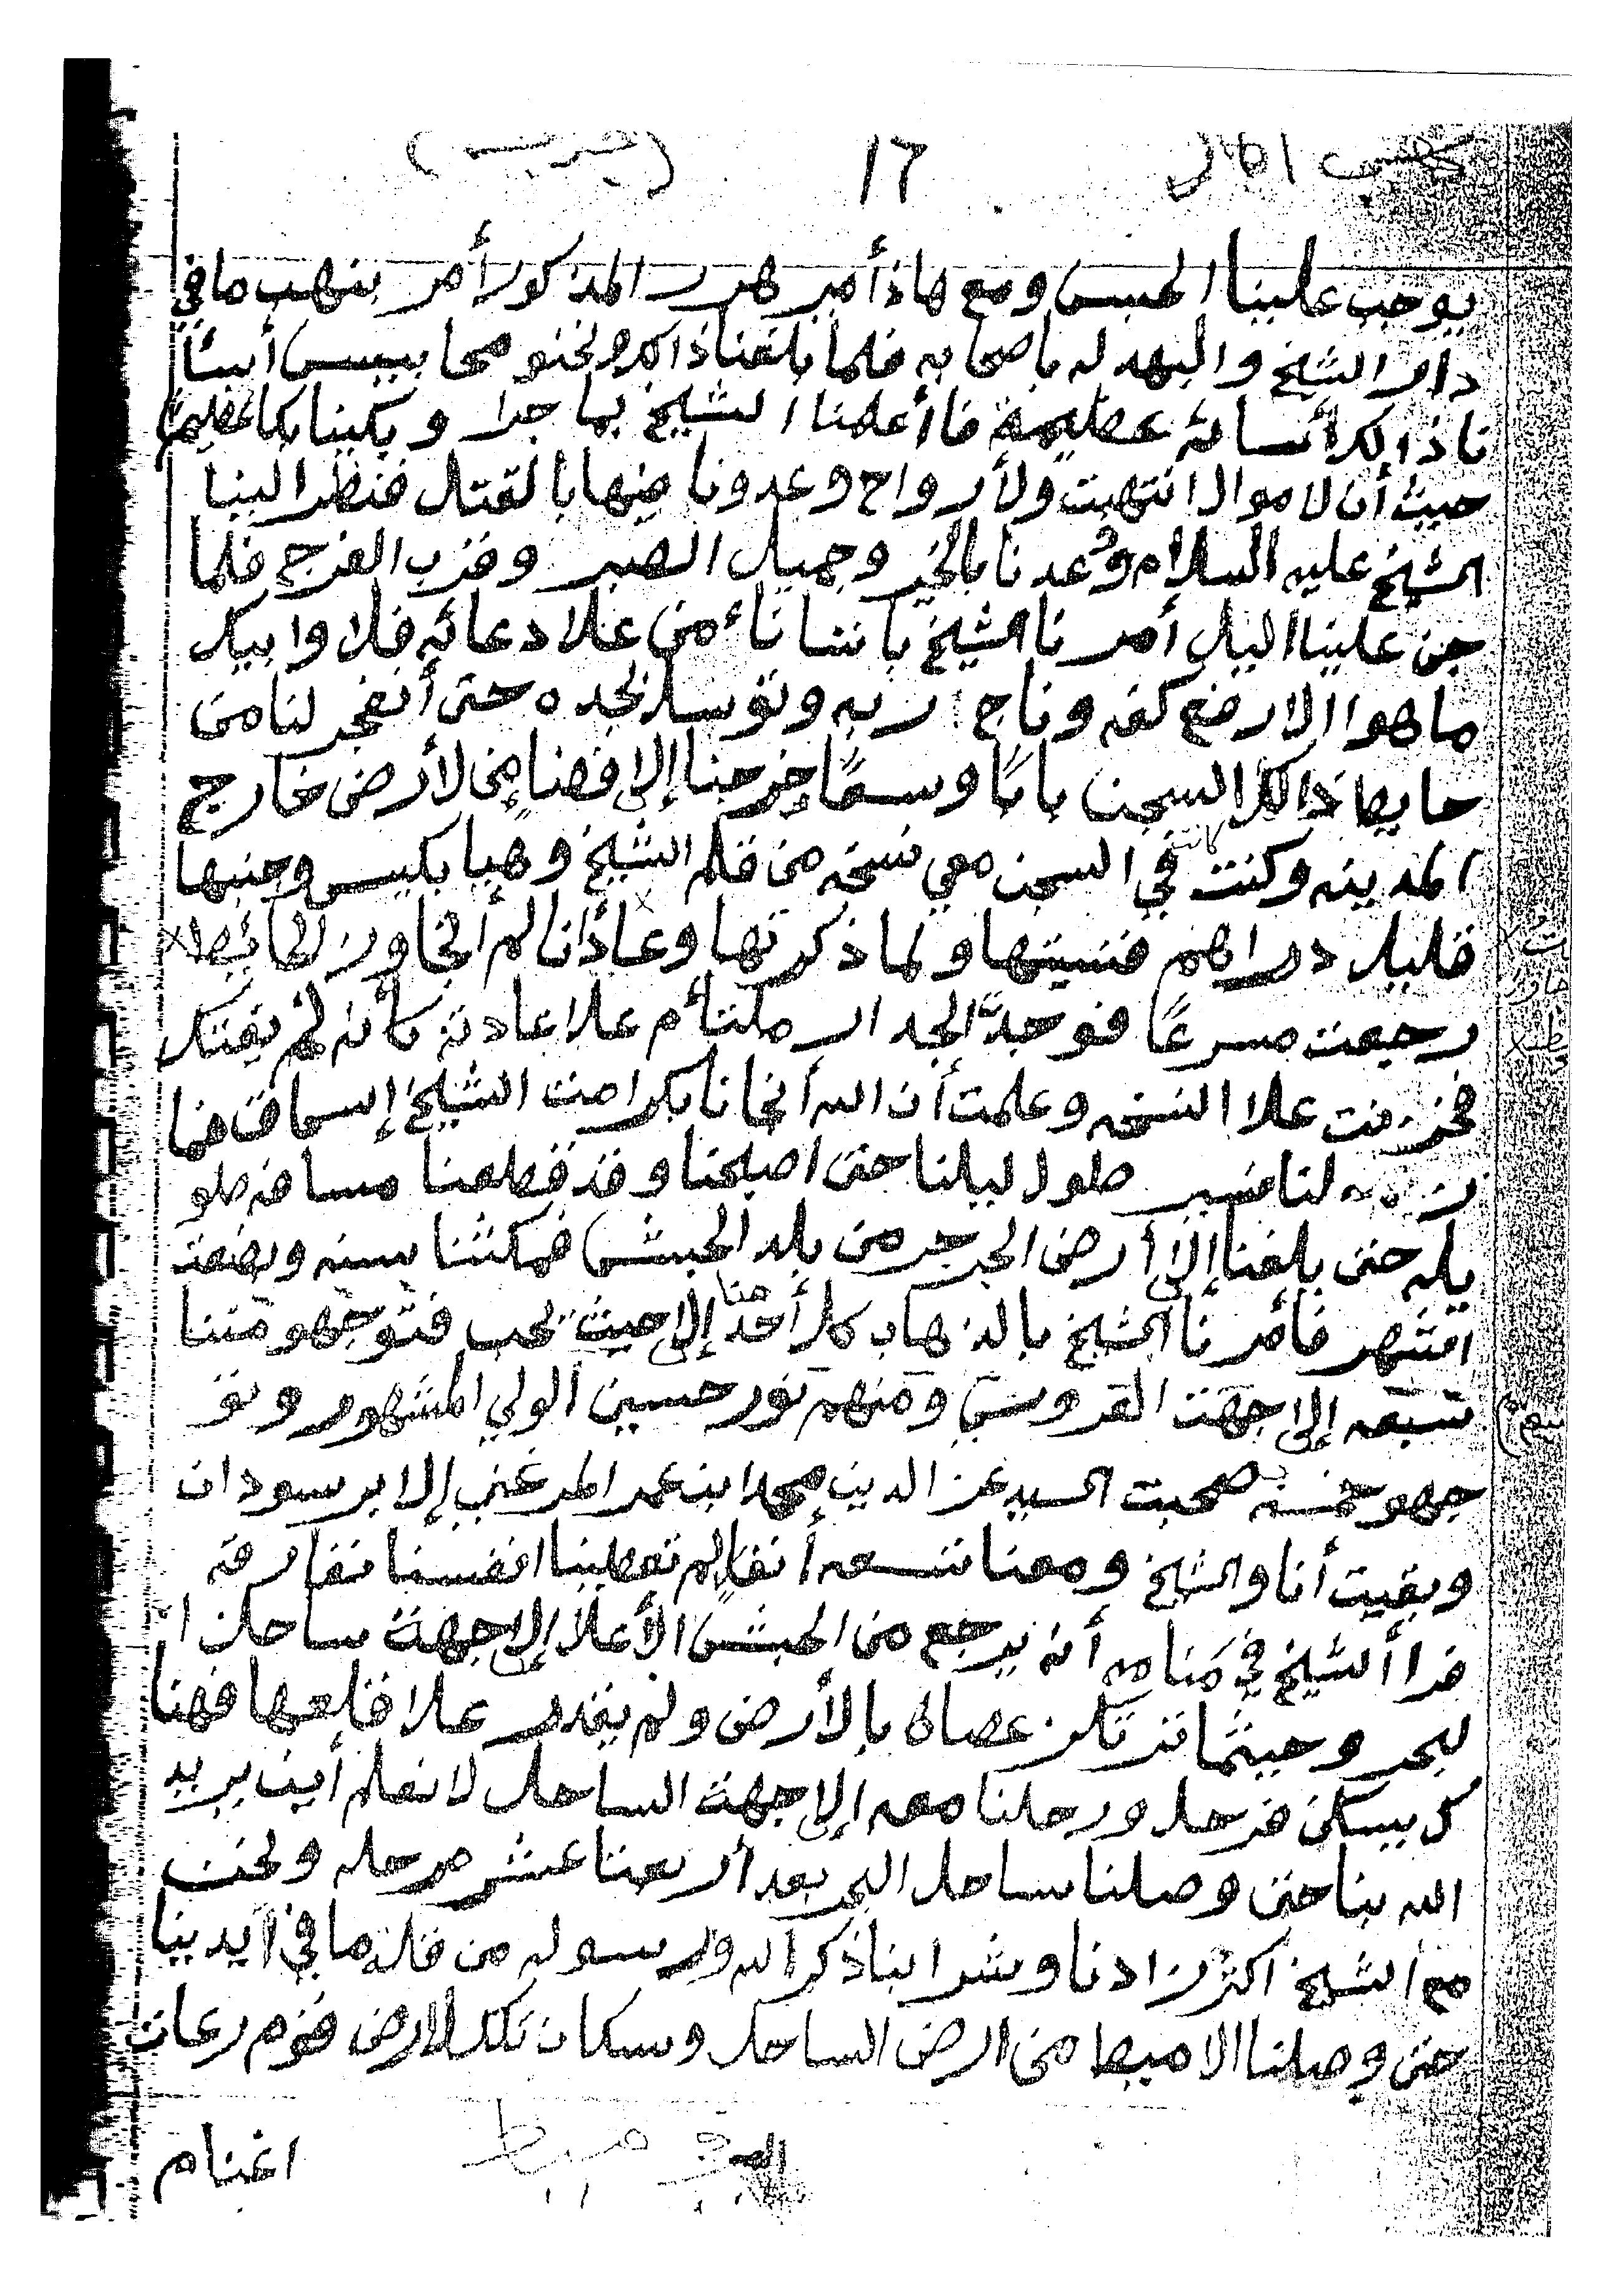 ١٦
يوجب علينا الحبس ومع هاذا أمير هرر المذكور أمر بنهب ما في
دار الشيخ والبهدله باصحابه فلما بلغنا ذالك ونحنو محابيس أسئا
نا ذالك أسائة عظيمة فاأعلمنا الشيخ بما جرا وبكينا بكا عظيما
حيث أن لاموال انتهبت ولأرواح وعدونا منها بالقتل فنظر الينا
الشيخ عليه السلام وعدنا بالخير وجميل الصبر وقرب الفرج فلما
جن علينا اليل أمرنا الشيخ بانتا نأمن علا دعائه فلا وابيك
ماهوا الا رفع كفه وناجا ربه وتوسل بجده حتى أنفجر لنا من
حايط ذالك السجن بابًا وسعًا خرجنا إلى فضاء من لأرض خارج
المدينه وكنت في السجن كانت معي نسخه من قلم الشيخ وهيا بكيس وجنبها
قليل دراهم فنسيتها ولما ذكرتها وعادنا لم أتجاوز الحائط
رجعت مسرعًا فوجدة الجدار ملتئم علا عادته كأنه لم يفتك
فحزنت علا النسخه وعلمت أن الله أنجانا بكرامت الشيخ إسحاق فما
زلنا نسير طول ليلنا حتى اصبحنا وقد قطعنا مسافه طو
يله حتى بلغنا إلى أرض الجرجر من بلد الحبش فمكثنا سنه وبضعة
اشهر فأمرنا الشيخ بالذهاب كل أحد منا إلى حيث يحب فتوجهو مننا
تسعه إلى جهت القدوسي ومنهم نور حسين الولي المشهور وتو
جهو خمسه صحبت السيد عز الدين محمد ابن عمر المرغني إلا بر سودان
وبقيت أنا والشيخ ومعنا تسعه أنفار لم تعطينا انفسنا نفارقه
فرا ألشيخ في منامه أنه يرجع من الحبش الأعلا إلى جهة ساحل ا
لبحر وحيثما ترتكز عصاك بالأرض ولم يقدر علا قلعها فهنا
ك يسكن فرحل ورحلنا معه إلى جهة الساحل لا نعلم أين يريد
الله بنا حتى وصلنا ساحل البحر بعد أربعتا عشر مرحله ونحن
مع الشيخ اكثر زادنا وشرابنا ذكر الله ورسوله من قلة ما في أيدينا
حتى وصلنا الا ميط من ارض الساحل وسكان تلك لارض قوم رعات
اغنام
ميط